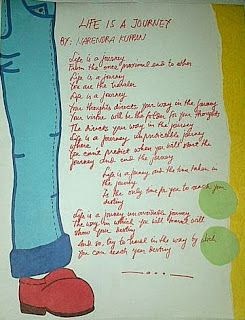 LIFE IS A JOURNEY
BY: NARENDRA
Life is a journey
From the one, provisional end to other
Life is a journey
You are the
Life is a journey
Your thoughts directs your way in the journey
Your virtue will be the for your thoughts
The directs your way in the journey
Life is a journey unpredictable journey
where
You can't predict when you will start the
journey and end the journey
Life is a journey and the time taken in
the journey
Is the only time for you to reach your
destiny
Life is a journey journey
The way in which you will travel will
show your destiny
And so, try to travel in the way by which
You can reach your destiny